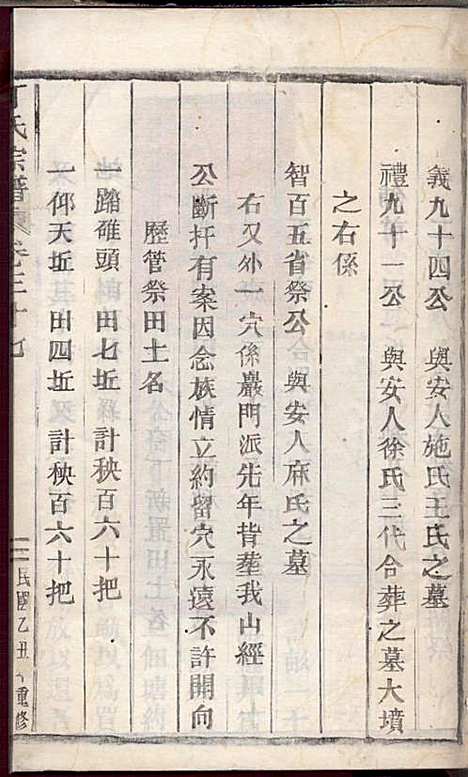 義九十四公　與安人施氏王氏之墓
禮九十一公　與安人徐氏三代合葬之墓大墳
之右係
智百五省祭公　與安人麻氏之墓
右又外一穴係巖門派先年背塟我山經
公斷扦有案因念族情立約留穴永遠不許開向
歷管祭田土名
一踏碓頭　田七坵　計秧百六十把
一仰天坵　田四坵　計秧百六十把
丁氏宗譜　卷三十七　民國乙丑　重修